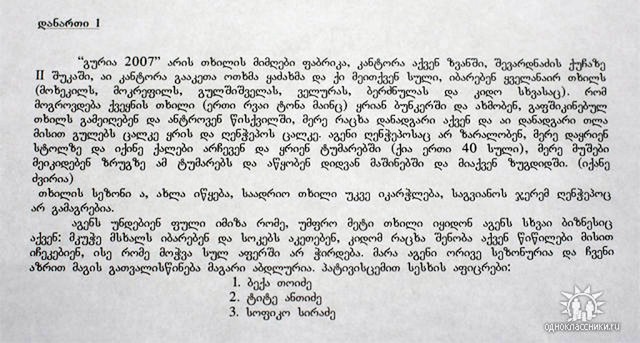 დანართი 1
"გურია 2007" არის თხილის მიმღები ფაბრიკა, კანტორა აქვენ ზვანში, შევარდნაძის ქუჩაზე
II შუკაში, აი კანტორა გააკეთა ოთხმა ყაძახმა და ქი მეითქვენ სული, იბარებენ ყველანაირ თხილს
(მოხეკილს, მოკრეფილს, გულშიშველს, ველურას, ბერძნულას და კიდო სხვასაც). რომ
მოგროვდება ქვეყნის თხილი (ერთი რვაი ტონა მაინც) ყრიან ბუნკერში და ახმობენ, გაფშიკინებულ
თხილს გამეიღებენ და ანტროვენ წისქვილში, მერე რაცხა დანადგარი აქვენ და აი დანადგარი თლა
მისით გულებს ცალკე ყრის და ღენჭეპოს ცალკე. აგენი ღენჭეპოსაც არ ზარალობენ, მერე დაყრიენ
სტოლზე და იქინე ქალები არჩევენ და ყრიენ ტუმარებში (ქია ერთი 40 სული), მერე მუშები
მეიკიდებენ ზრუგზე ამ ტუმარებს და აწყობენ დიდვან მაშინებში და მიაქვენ ზუგდიდში. (იქანე
ძვირია)
თხილის სეზონი ა, ახლა იწყება, საადრიო თხილი უკვე იკარჭლება, საგვიანოს ჯერემ ღენჭეპოც
არ გამაგრებია.
აგენს უნდებიენ ფული იმიზა რომე, უმფრო მეტი თხილი იყიდონ აგენს სხვაი ბიზნესიც
აქვენ: მკუჭე მსხალს იბარებენ და სოკებს აკეთებენ, კიდომ რაცხა შენობა აქვენ წიწილები მისით
იჩეკებიენ, ისე რომე მოჭვა სულ აფერში არ ჭირდება. მარა აგენი ორივე სეზონურია და ჩვენი
აზრით მაგის გათვალისწინება მაგარი აბდლურია. პატივისცემით სესხის აფიცრები:
1. ბექა თოიძე
2. ტიტე ანთიძე
3. სოფიკო სირაძე
одноклассники.ru